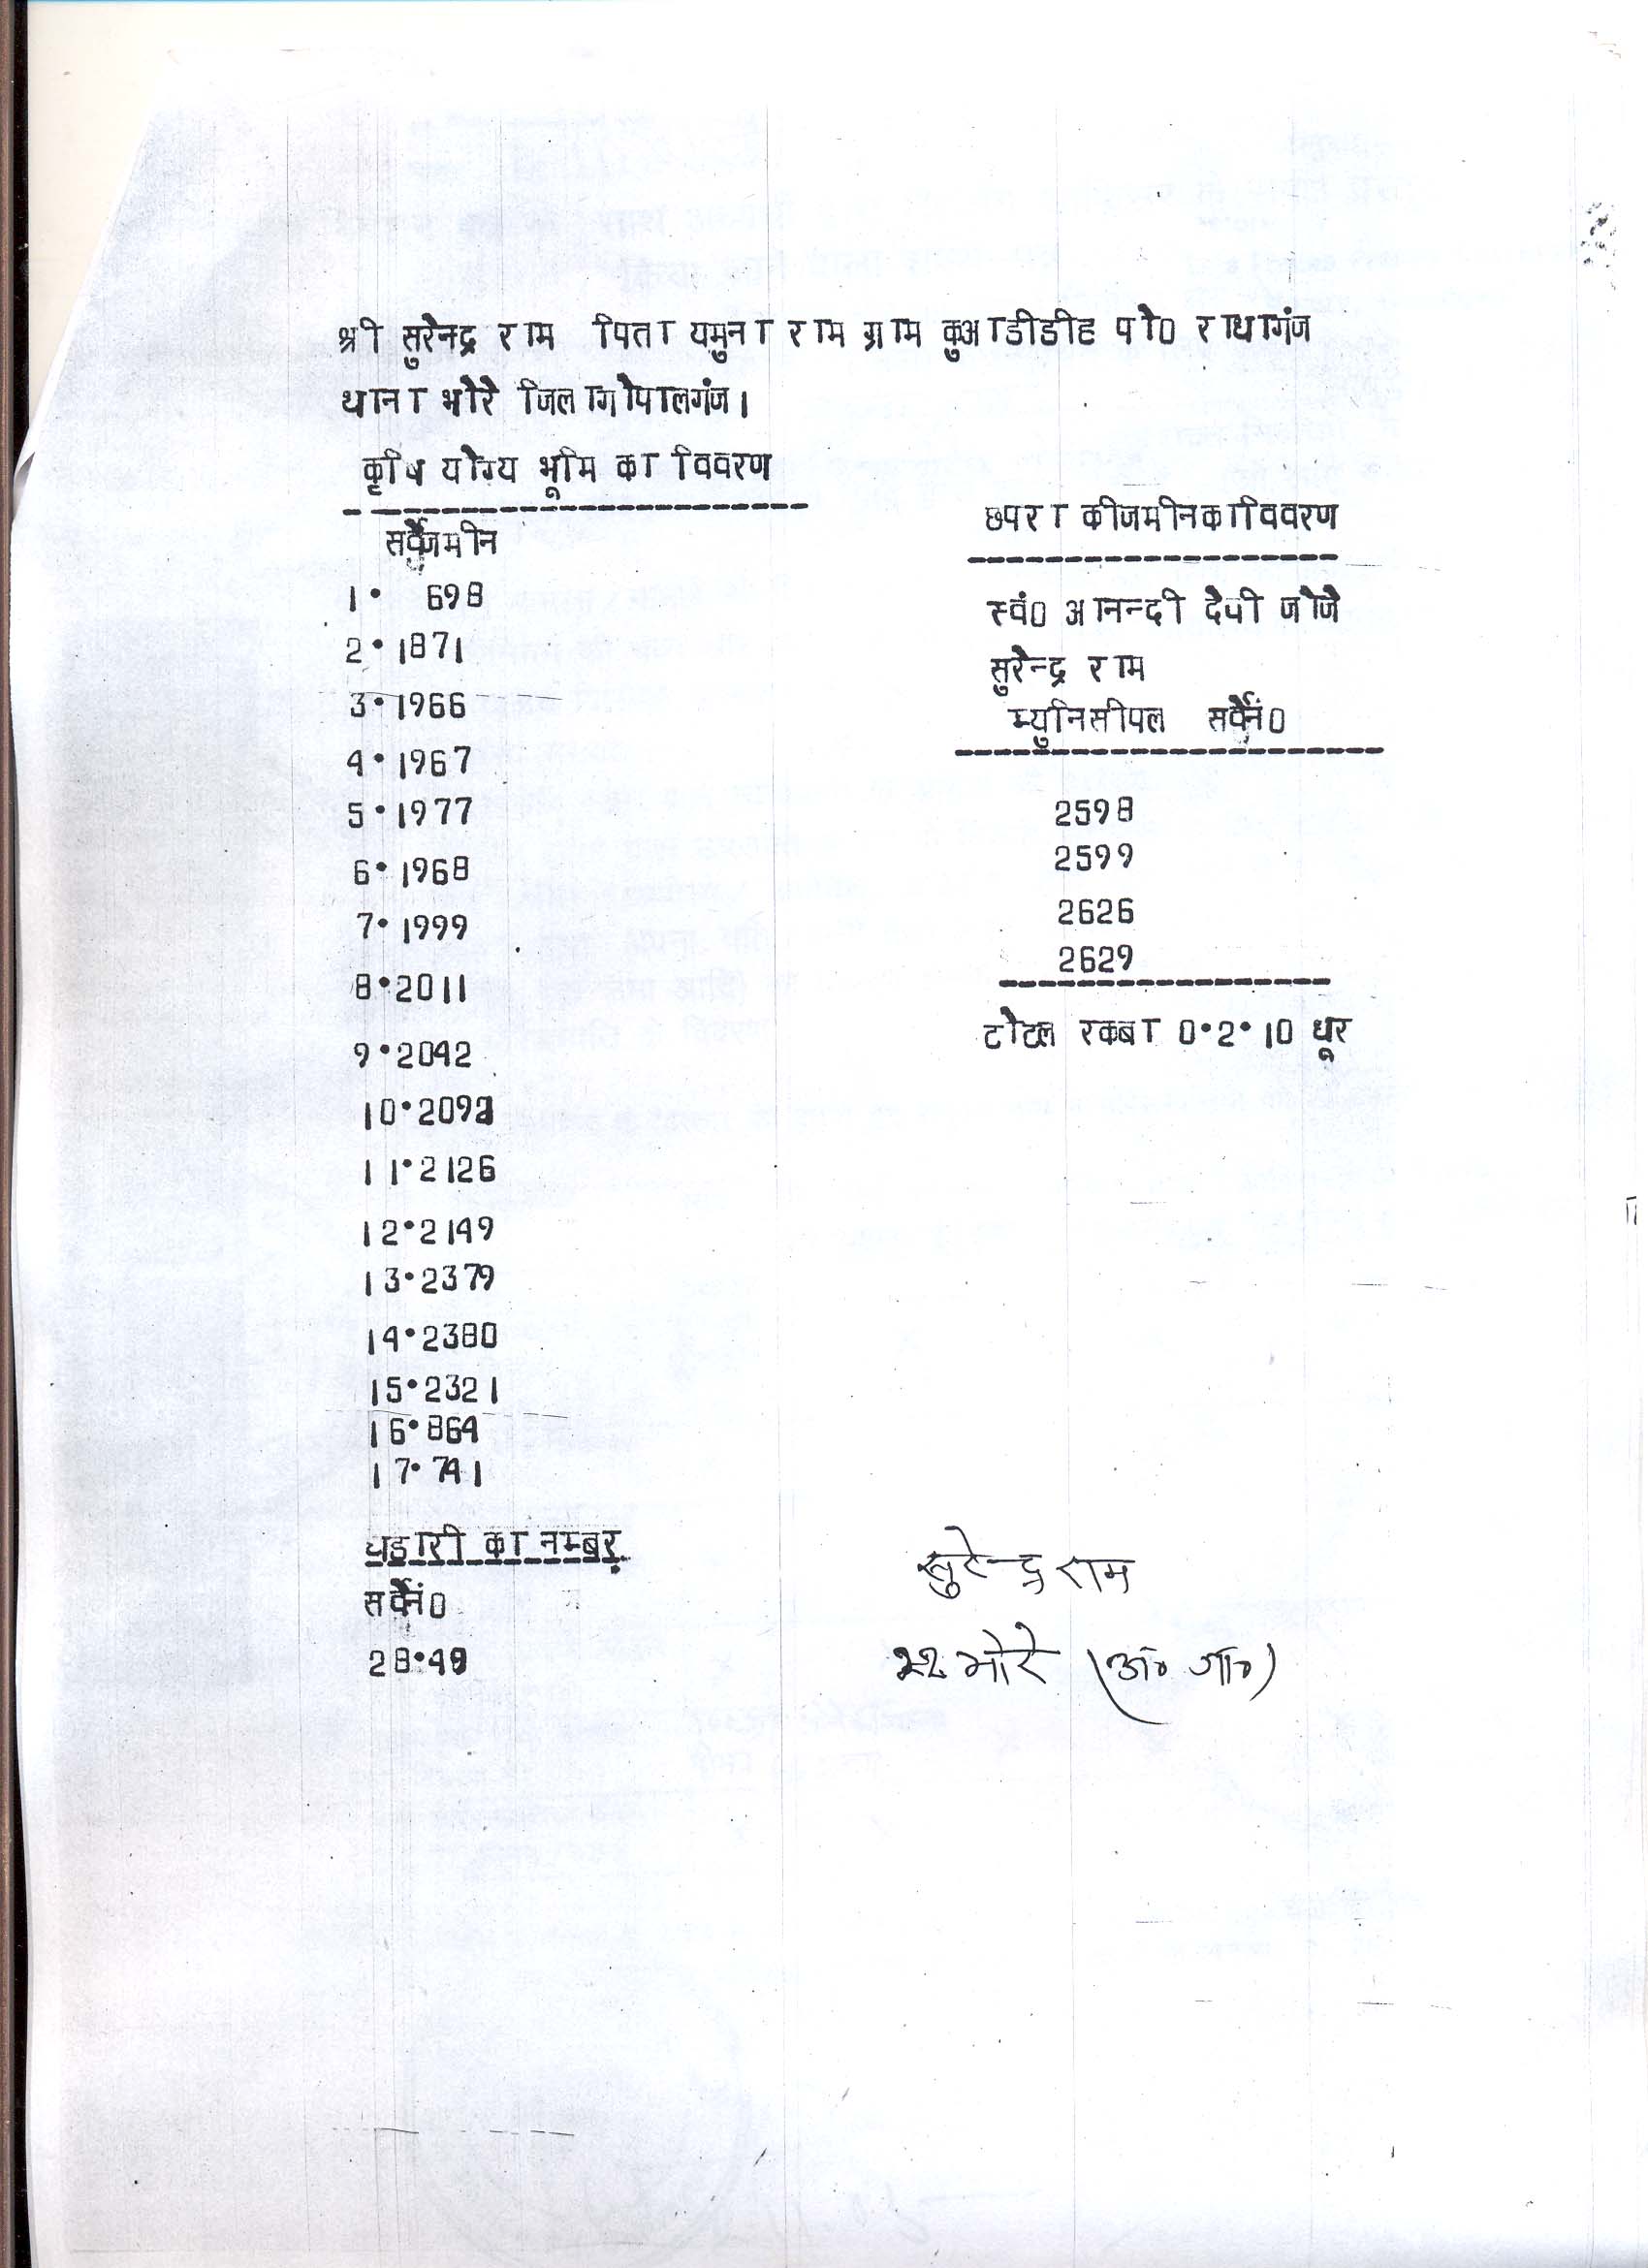 श्री सुरेन्द्र राम पिता यमुना राम ग्राम कुआडीडीह पो0 राधागंज
थाना भोरे जिला गोपालगंज।
कृषि योग्य भूमि का विवरण
सर्वे जमीन
1• 698
2•1871
3•1966
4•1967
5•1977
6•1968
7•1999
8•2011
9•2042
10•209
11•2126
12•2149
13•2379
14•2380
15•2321
16•864
17•741
घडारी का नम्बर
सर्वे नं0
28•49
छपरा की जमीन का विवरण
स्वं0 आनन्दी देवी जौजे
सुरेन्द्र राम
म्युनिसीपल सर्वे नं0
2598
2599
2626
2629
टोटल रकबा 0•2•10 धूर
सुरेन्द्र राम
भोरे (अ० जा०)